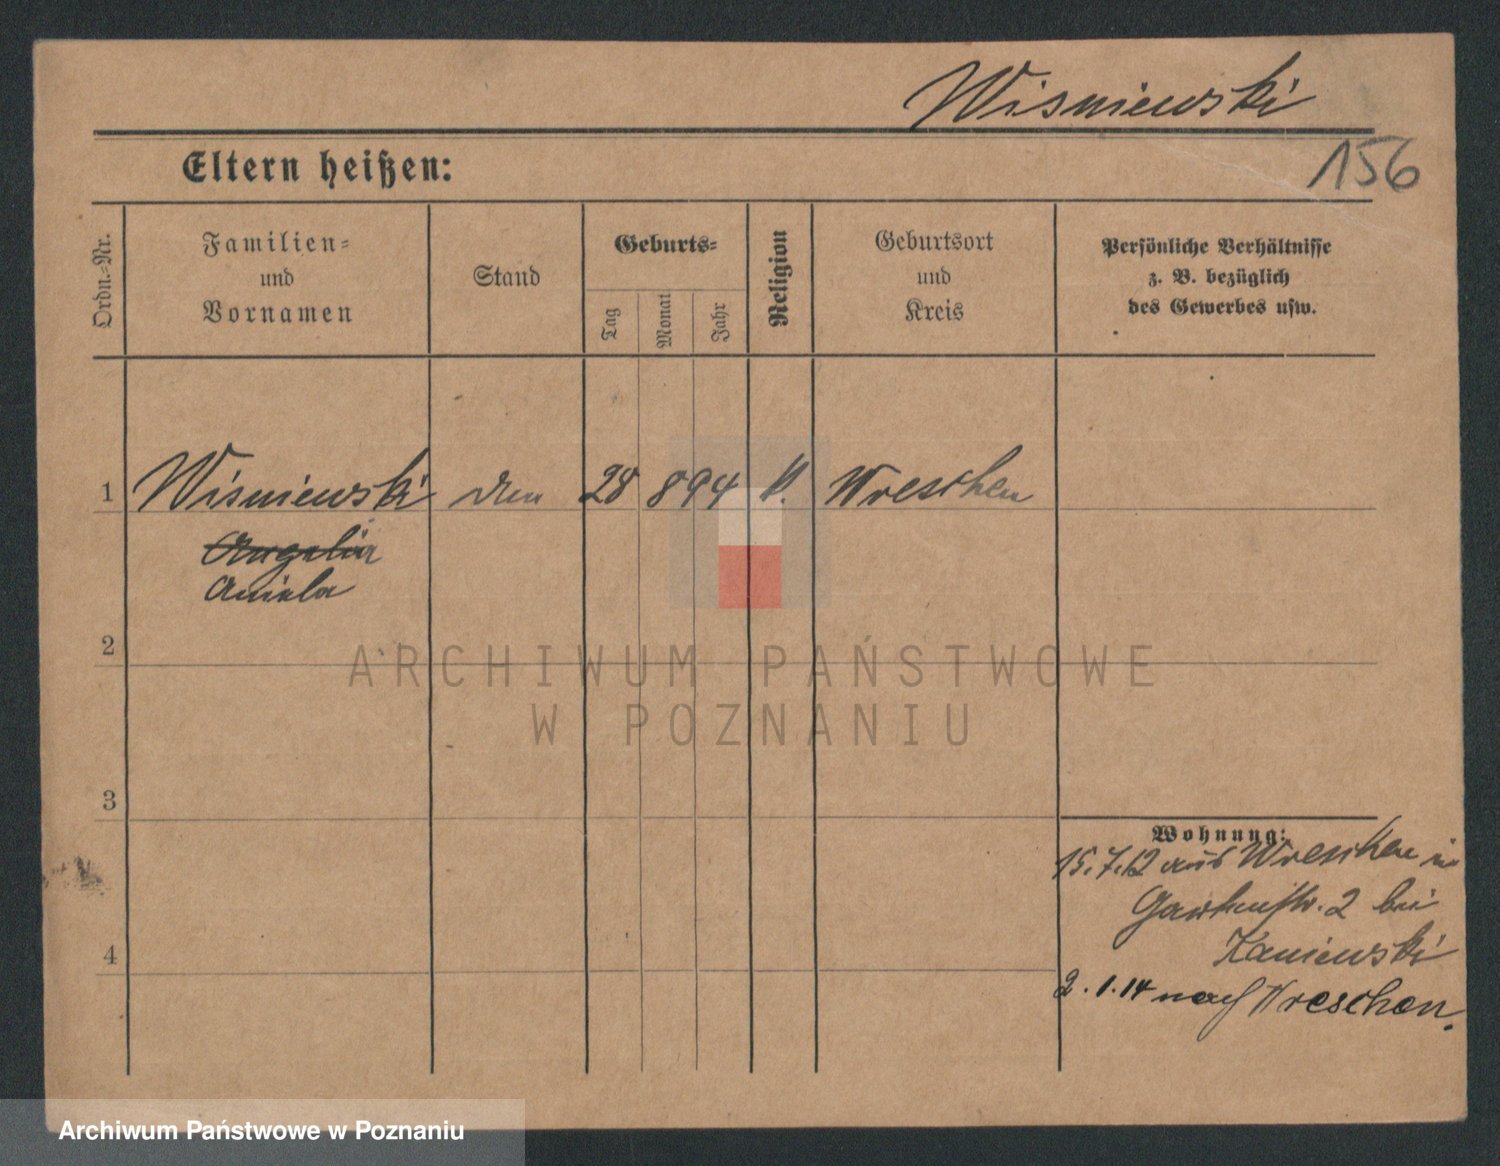 Wisniewski
156
Eltern heißen:
Ordn.=Nr.
Familien=
und
Vornamen
Stand
Geburts=
Tag
Monat
Jahr
Religion
Geburtsort
und
Kreis
Persönliche Verhältnisse
z. B. bezüglich
des Gewerbes usw.
1 Wisniewski 28 8 94 k. Wreschen
Angelia
Aniela
2
3
4
Wohnung:
15.7.12 aus Wreschen in
Gartenstr. 2 bei
Kaniewski
2.1.14 nach Wreschen.
ARCHIWUM PAŃSTWOWE
W POZNANIU
Archiwum Państwowe w Poznaniu